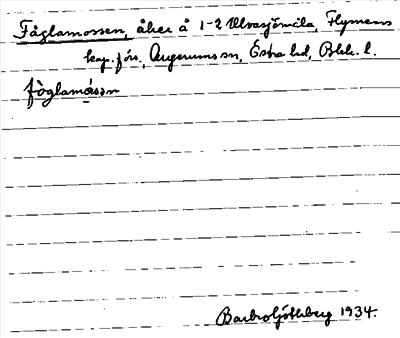 Fåglamossen, åker å 1-2 Ulvasjömåla, Flymens
kap. förs. Augerums sn, Östra hd, Blek. l.
fòglamåsən
Barbro Göthberg 1934.